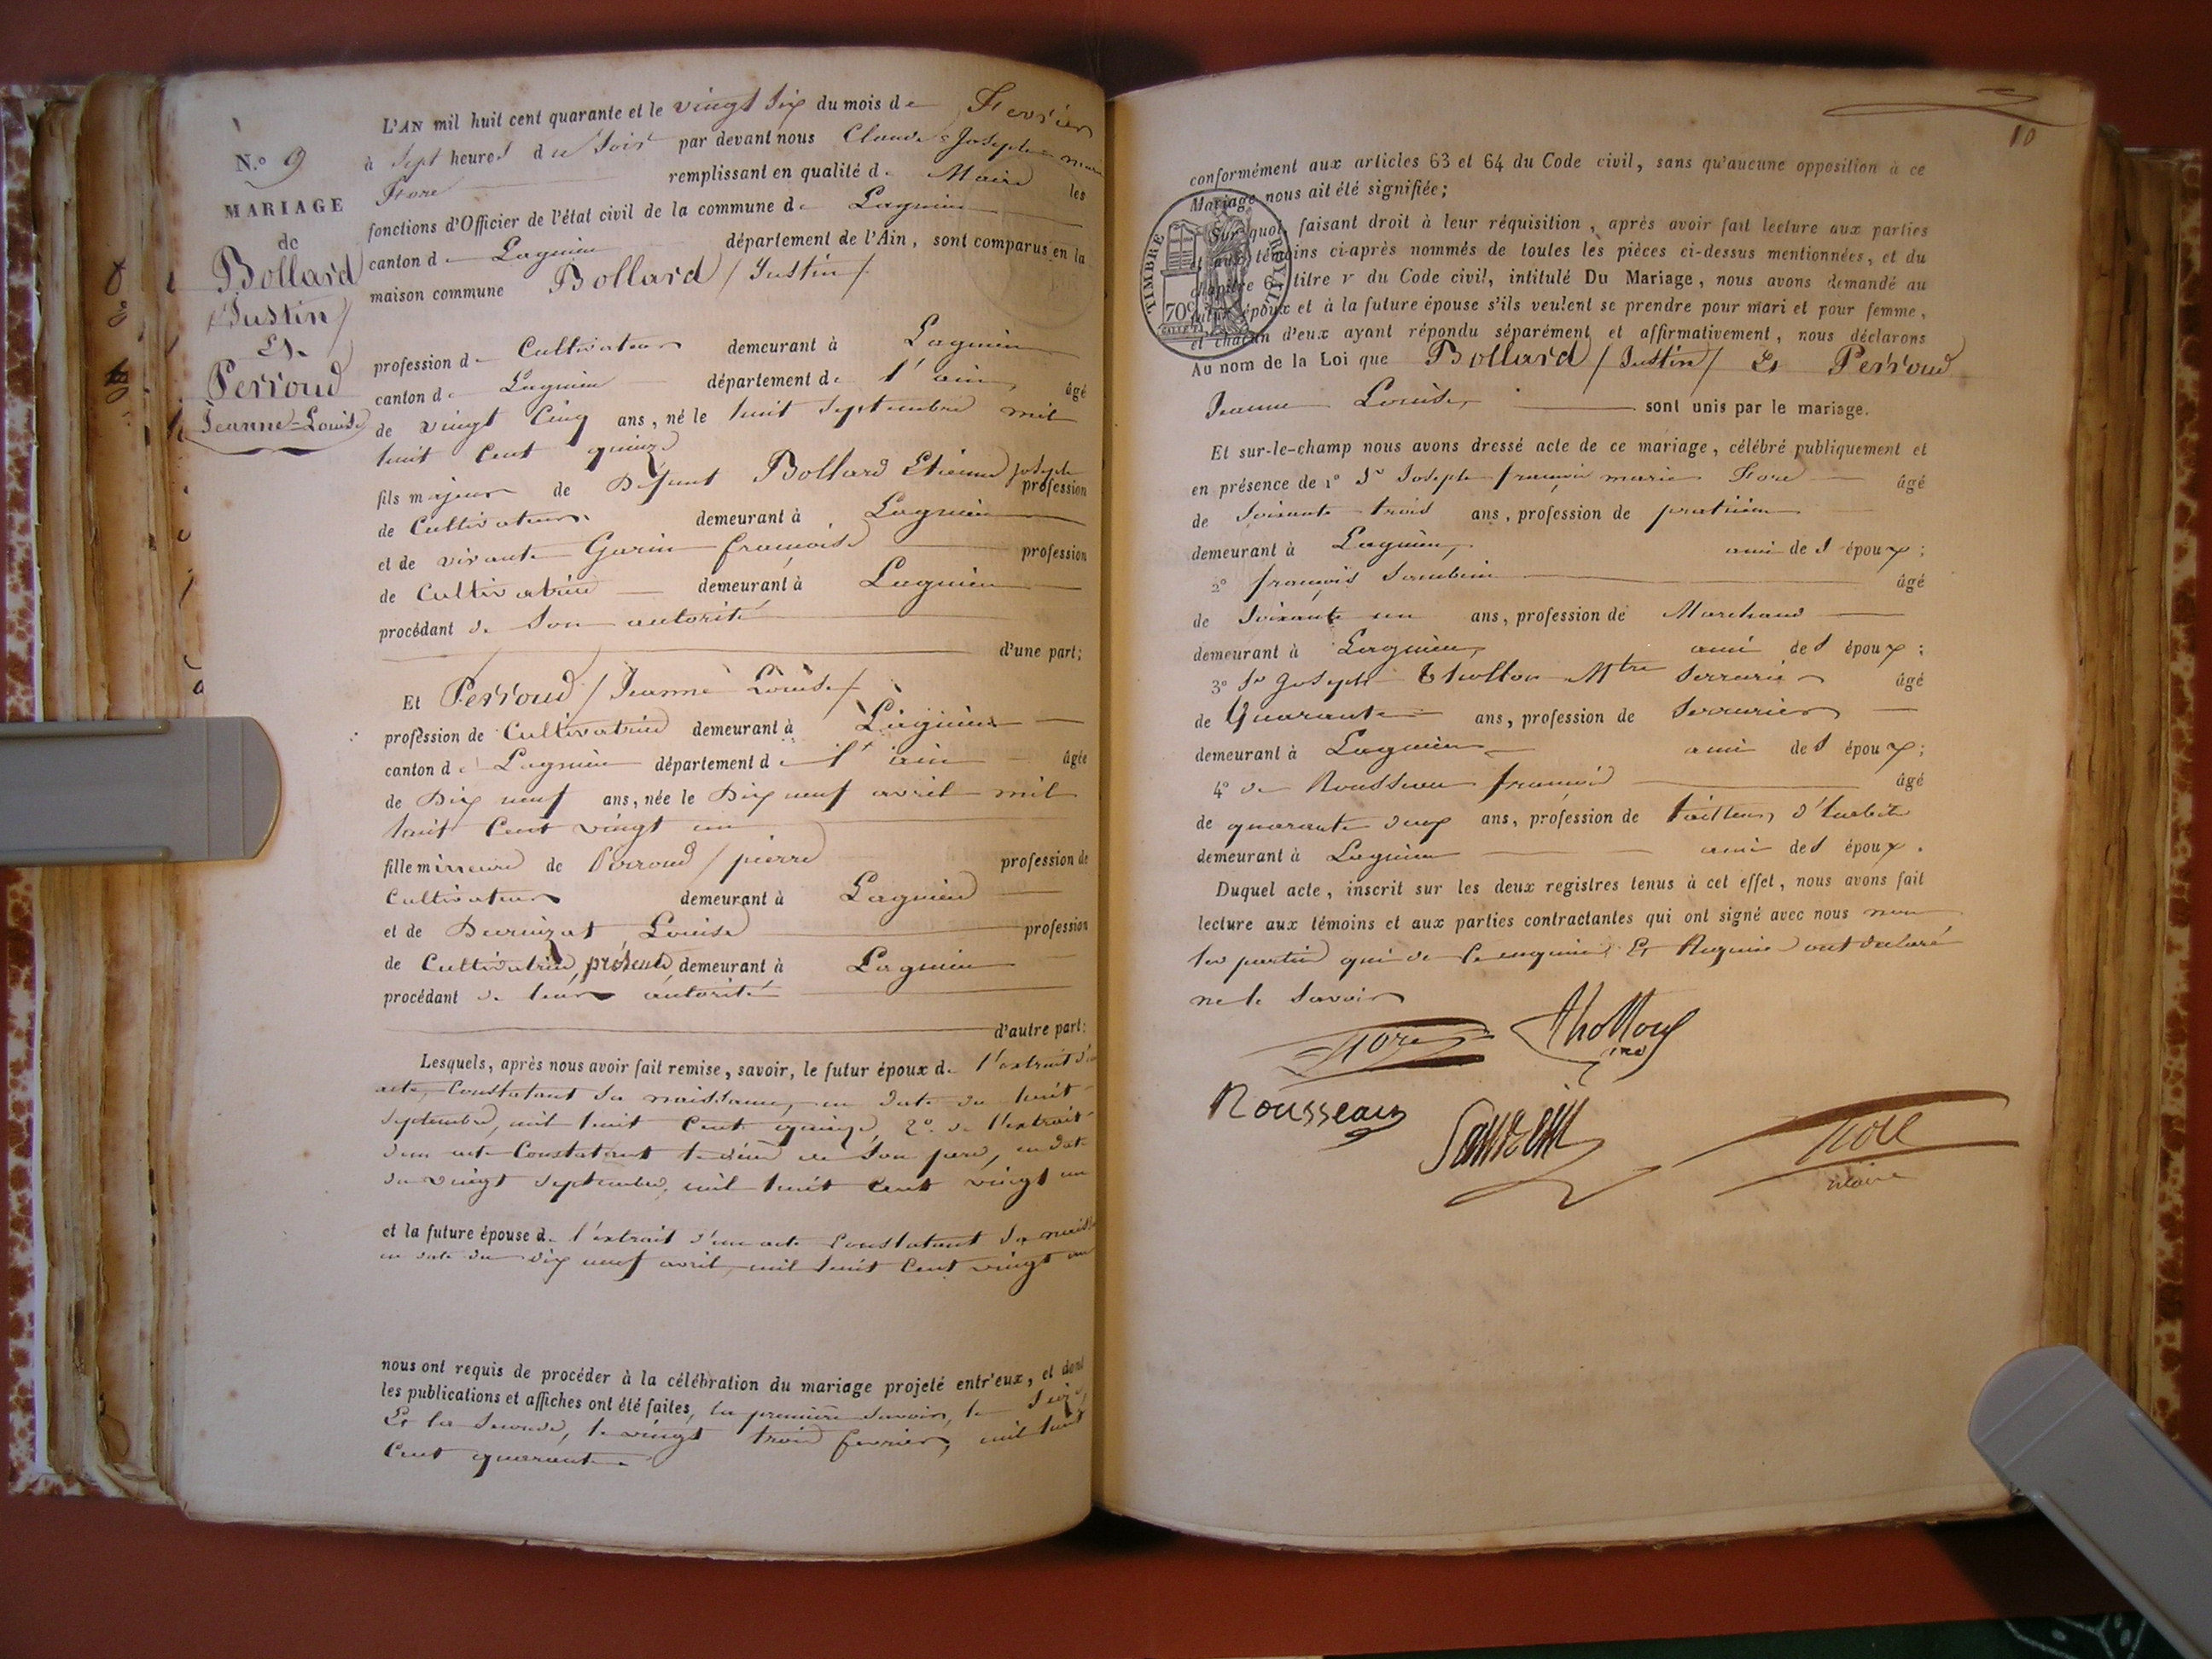 N.º 9
MARIAGE
de
Bollard
/Justin/
Et
Perroud
Jeanne=Louise
L'AN mil huit cent quarante et le vingt six du mois de Fevrier
à sept heures du soir par devant nous Claude=Joseph=marie
Fore remplissant en qualité de Maire les
fonctions d'Officier de l'état civil de la commune de Lagnieu
canton de Lagnieu département de l'Ain, sont comparus en la
maison commune Bollard /Justin/
profession de Cultivateur demeurant à Lagnieu
canton de Lagnieu département de l'ain âgé
de vingt cinq ans, né le huit septembre mil
huit cent quinze
fils majeur de Défunt Bollard Etienne joseph profession
de Cultivateur demeurant à Lagnieu
et de vivante Garin françoise profession
de Cultivatrice demeurant à Lagnieu
procédant de son autorité
d'une part;
Et Perroud /Jeanne Louise/
profession de Cultivatrice demeurant à Lagnieu
canton de Lagnieu département de l'ain âgée
de Dix neuf ans, née le Dix neuf avril mil
huit cent vingt un
fille mineure de Perroud /pierre profession de
Cultivateur demeurant à Lagnieu
et de Louise profession
de Cultivatrice, présents, demeurant à Lagnieu
procédant de leur autorité
d'autre part:
Lesquels, après nous avoir fait remise, savoir, le futur époux de l'extrait d'un
acte, Constatant sa naissance, en date du huit
septembre, mil huit cent quinze, 2º de l'extrait
d'un acte Constatant le décès de son père, en date
du vingt septembre, mil huit cent vingt un
et la future épouse de l'extrait d'un acte constatant sa
en date du dix neuf avril, mil huit cent vingt un
nous ont requis de procéder à la célébration du mariage projeté entr'eux, et dont
les publications et affiches ont été faites, la première savoir, le seize,
Et la seconde, le vingt trois fevrier, mil huit
cent quarante
10
conformément aux articles 63 et 64 du Code civil, sans qu'aucune opposition à ce
Mariage nous ait été signifiée;
TIMBRE ROYAL
70c
Sur quoi, faisant droit à leur réquisition, après avoir fait lecture aux parties
et aux témoins ci-après nommés de toutes les pièces ci-dessus mentionnées, et du
chapitre 6, titre v du Code civil, intitulé Du Mariage, nous avons demandé au
futur époux et à la future épouse s'ils veulent se prendre pour mari et pour femme,
et chacun d'eux ayant répondu séparément et affirmativement, nous déclarons
Au nom de la Loi que Bollard /Justin/ Et Perroud
Jeanne Louise, sont unis par le mariage.
Et sur-le-champ nous avons dressé acte de ce mariage, célébré publiquement et
en présence de 1º Sr Joseph françois marie Fore âgé
de soixante trois ans, profession de praticien
demeurant à Lagnieu, ami des époux;
2º françois âgé
de soixante un ans, profession de Marchand
demeurant à Lagnieu, ami des époux;
3º Sr Joseph Thollon Mtre serrurier âgé
de Quarante ans, profession de serrurier
demeurant à Lagnieu ami des époux;
4º de Rousseau françois âgé
de quarante deux ans, profession de tailleur d'habits
demeurant à Lagnieu ami des époux.
Duquel acte, inscrit sur les deux registres tenus à cet effet, nous avons fait
lecture aux témoins et aux parties contractantes qui ont signé avec nous non
les parties qui de ce enquises Et Requises ont declaré
ne le savoir
Fore Thollon
Rousseau
Fore
maire